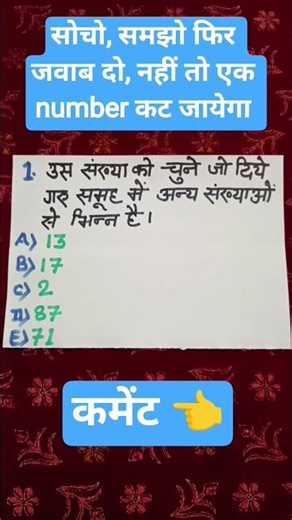 सोचो, समझो फिर
जवाब दो, नहीं तो एक
number कट जायेगा
1. उस संख्या को चुने जो दिये
गए समूह में अन्य संख्याओं
से भिन्न है।
A) 13
B) 17
C) 2
D) 87
E) 71
कमेंट 👈